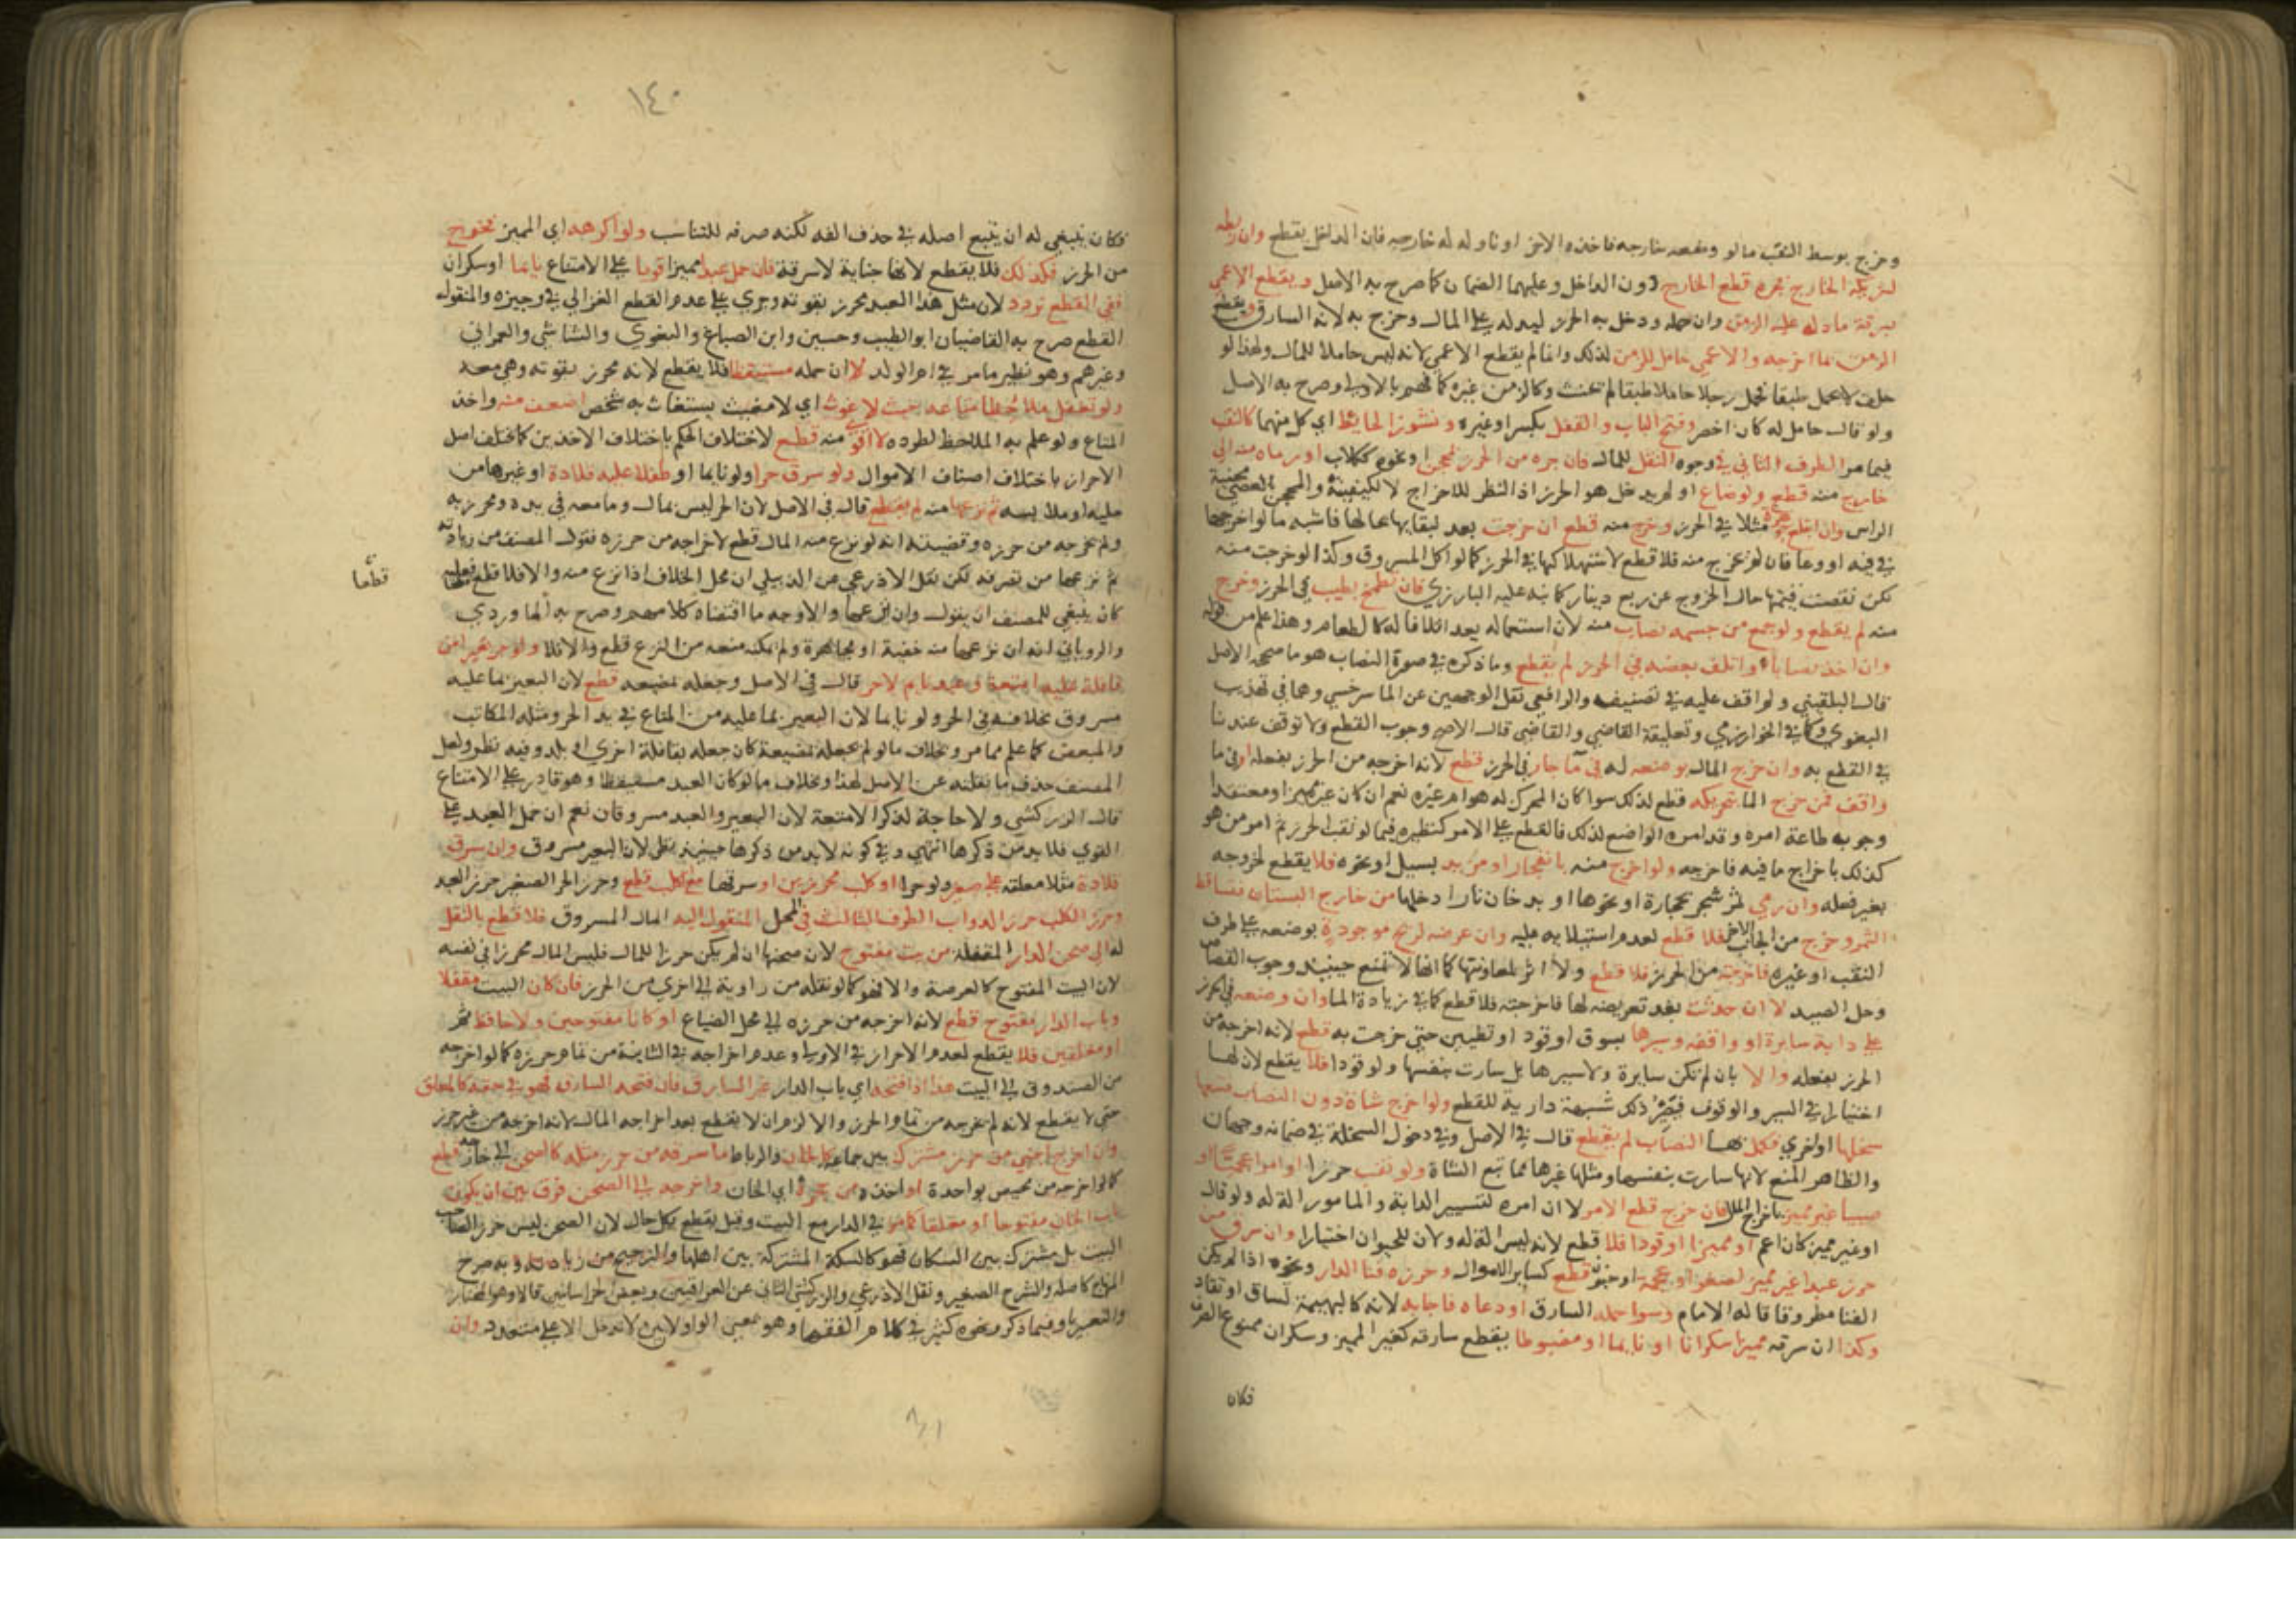 وخرج بوسط النقب ما لو وضعه خارجه فاخذه الاخر او ناوله له خارجه فان الداخل يقطع وان ربطه
لشريكه الخارج فجره قطع الخارج دون الداخل وعليهما الضمان كما صرح به الاصل ويقطع الاعمى
بسرقة ما دله عليه الزمن وان حمله ودخل به الحرز ليدله على المال وخرج به لانه السارق ويقطع
الزمن بما اخرجه والاعمى حامل للزمن لذلك وانما لم يقطع الاعمى لانه ليس حاملا للمال ولهذا لو
حلف لا يحمل طبقا فحمل رجلا حاملا طبقا لم يحنث وكالزمن غيره كما فهم بالاولى وصرح به الاصل
ولو قال حامل له كان اخصر وفتح الباب والقفل بكسر او غيره ونشوز الحائط اي كل منهما كالنقب
فيما مر الطرف الثاني في وجوه النقل للمال فان جره من الحرز بمحجن او نحوه ككلاب او رماه منه الى
خارج منه قطع ولو ضاع او لم يدخل هو الحرز اذ النظر للاخراج لا لكيفيته والمحجن العصى محنية
الراس وان ابتلع جوهرة مثلا في الحرز وخرج منه قطع ان خرجت بعد لبقايها بحالها فاشبه ما لو اخرجها
في فيه او وعا فان لم تخرج منه فلا قطع لاستهلاكها في الحرز كما لو اكل المسروق وكذا لو خرجت منه
لكن نقصت قيمتها حال الخروج عن ربع دينار كما نبه عليه البارزي فان تضمخ بطيب في الحرز وخرج
منه لم يقطع ولو جمع من جسمه نصاب منه لان استعماله يعد اتلافا له كالطعام وهذا علم من قوله
وان اخذ نصابا واتلف بعضه في الحرز لم يقطع وما ذكره في صورة النصاب هو ما صححه الاصل
قال البلقيني ولم اقف عليه في تصنيف والرافعي نقل الوجهين عن الماسرخسي وهما في تهذيب
البغوي وكافي الخوارزمي وتعليقة القاضي والقاضي قال الاصح وجوب القطع ولا توقف عندنا
في القطع به وان خرج المال بوضعه له في ما جار في الحرز قطع لانه اخرجه من الحرز بفعله او في ما
واقف فمن خرج الما بتحريكه قطع لذلك سوا كان المحرك له هو ام غيره نعم ان كان غير مميز او معتقدا
وجوب طاعة امره وقد امره الواضع لذلك فالقطع على الامر كنظيره فيما لو نقب الحرز ثم امر من هو
كذلك باخراج ما فيه فاخرجه ولو اخرج منه بانفجار او مزيد بسيل او نحوه فلا يقطع لخروجه
بغير فعله وان رمى ثمر شجر بحجارة او نحوها او بدخان نار ادخلها من خارج البستان فتساقط
الثمر وخرج من الجانب الاخر فلا قطع لعدم استيلايه عليه وان عرضه لريح موجودة بوضعه على طرف
النقب او غيره فاخرجته من الحرز فلا قطع ولا اثر لمعاونتها كما انها لا تمنع حينيذ وجوب القصاص
وحل الصيد لا ان حدثت بعد تعريضه لها فاخرجته فلا قطع كما في زيادة الما وان وضعه في الحرز
على دابة سايرة او واقفة وسيرها بسوق او قود او تطهين حتى خرجت به قطع لانه اخرجه من
الحرز بفعله والا بان لم تكن سايرة ولا سيرها بل سارت بنفسها ولو قودا فلا يقطع لان لها
اختيارا في السير والوقوف فيصير ذلك شبهة دارية للقطع ولو اخرج شاة دون النصاب فتبعها
سخلها او اخرى فكمل بها النصاب لم يقطع قال في الاصل وفي دخول السخلة في ضمانه وجهان
والظاهر المنع لانها سارت بنفسها ومثلها غيرها مما تبع الشاة ولو نقب حرزا او امر اعجميا او
صبيا غير مميز باخراج المال فان خرج قطع الامر لا ان امره لتسيير الدابة والمامور الة له ولو قال
او غير مميز كان اعم او مميزا او قردا فلا قطع لانه ليس الة له ولان للحيوان اختيارا وان سرق من
حرز عبدا غير مميز لصغر او عجمة او جنون قطع كساير الاموال وحرزه فنا الدار ونحوه اذا لم يكن
الفنا مطروقا قاله الامام وسوا حمله السارق او دعاه فاجابه لانه كالبهيمة تساق او تقاد
وكذا ان سرقه مميزا سكرانا او نايما او مضبوطا يقطع سارقه كغير المميز وسكران ممنوع الصرف
فكان
١٤٠
فكان ينبغي له ان يتبع اصله في حذف الفه لكنه صرفه للتناسب ولو اكرهه اي المميز فخرج
من الحرز فكذلك فلا يقطع لانها جناية لا سرقة فان حمل عبدا مميزا قويا على الامتناع نايما او سكران
ففي القطع تردد لان مثل هذا العبد محرز بقوته وجرى على عدم القطع الغزالي في وجيزه والمنقول
القطع صرح به القاضيان ابو الطيب وحسين وابن الصباغ والبغوي والشاشي والعمراني
وغيرهم وهو نظير ما مر في ام الولد لا ان حمله مستيقظا فلا يقطع لانه محرز بقوته وهي معه
ولو تغفل ملاحظا متاعه بحيث لا غوث اي لا مغيث يستغاث به شخص اضعف منه واخذ
المتاع ولو علم به الملاحظ لطرده لا اقوى منه قطع لاختلاف الحكم باختلاف الاخذين كما يختلف اصل
الاحراز باختلاف اصناف الاموال ولو سرق حرا ولو نايما او طفلا عليه قلادة او غيرها من
حليه او ملابسه ثم نزعها منه لم يقطع قال في الاصل لان الحر ليس بمال وما معه في يده ومحرز به
ولم يخرجه من حرزه وقضيته انه لو نزع منه المال قطع لاخراجه من حرزه فقول المصنف من زيادته
ثم نزعها من تصرفه لكن نقل الاذرعي عن الدبيلي ان محل الخلاف اذا نزع منه والا فلا قطع
قطعا
كان ينبغي للمصنف ان يقول وان نزعها والاوجه ما اقتضاه كلامهم وصرح به الماوردي
والروياني انه ان نزعها منه خفية او مجاهرة ولم يمكنه منعه من النزع قطع والا فلا ولو جر بعيرا من
قافلة عليه امتعة وعبد نايم لا حر قال في الاصل وجعله بمضيعه قطع لان البعير بما عليه
مسروق بخلافه في الحر ولو نايما لان البعير بما عليه من المتاع في يد الحر ومثله المكاتب
والمبعض كما علم مما مر وبخلاف ما لو لم يجعله بمضيعة كان جعله بقافلة اخرى او بلد وفيه نظر ولعل
المصنف حذف ما نقلته عن الاصل لهذا وبخلاف ما لو كان العبد مستيقظا وهو قادر على الامتناع
قال الزركشي ولا حاجة لذكر الامتعة لان البعير والعبد مسروقان نعم ان حمل العبد على
القوي فلا بد من ذكرها انتهى وفي كونه لا بد من ذكرها حينيذ نظر لان البعير مسروق وان سرق
قلادة مثلا معلقة على صغير ولو حرا او كلب محرزين او سرقها مع كلب قطع وحرز الحر الصغير حرز العبد
وحرز الكلب حرز الدواب الطرف الثالث في المحل المنقول اليه المال المسروق فلا قطع بالنقل
له الى صحن الدار المقفلة من بيت مفتوح لان صحنها ان لم يكن حرزا للمال فليس المال محرزا في نفسه
لان البيت المفتوح كالعرصة والا فهو كما لو نقله من زاوية الى اخرى من الحرز فان كان البيت مقفلا
وباب الدار مفتوح قطع لانه اخرجه من حرزه الى محل الضياع او كانا مفتوحين ولا حافظ ثم
او مغلقين فلا يقطع لعدم الاحراز في الاولى وعدم اخراجه في الثانية من تمام حرزه كما لو اخرجه
من الصندوق الى البيت هذا اذا فتحه اي باب الدار غير السارق فان فتحه السارق فهو في حقه كالمغلق
حتى لا يقطع لانه لم يخرجه من تمام الحرز والا لزم ان لا يقطع بعد اخراجه المال لانه اخرجه من غير حرز
وان اخرج اجنبي من حرز مشترك بين جماعة كالخان والرباط ما سرقه من حرز مثله كالصحن الى خارجه قطع
كما لو اخرجه من مختص بواحدة او اخذه من حجرة اي الخان واخرجه الى الصحن فرق بين ان يكون
باب الخان مفتوحا او مغلقا كما مر في الدار مع البيت وقيل يقطع بكل حال لان الصحن ليس حرزا لصاحب
البيت بل مشترك بين السكان فهو كالسكة المشتركة بين اهلها والترجيح من زيادته وبه صرح
المنهاج كاصله والشرح الصغير ونقل الاذرعي والزركشي الثاني عن العراقيين وبعض الخراسانيين قالا وهو المختار
والتعبير باو فيما ذكر ونحوه كثير في كلام الفقها وهو بمعنى الواو لان بين لا تدخل الا على متعدد وان